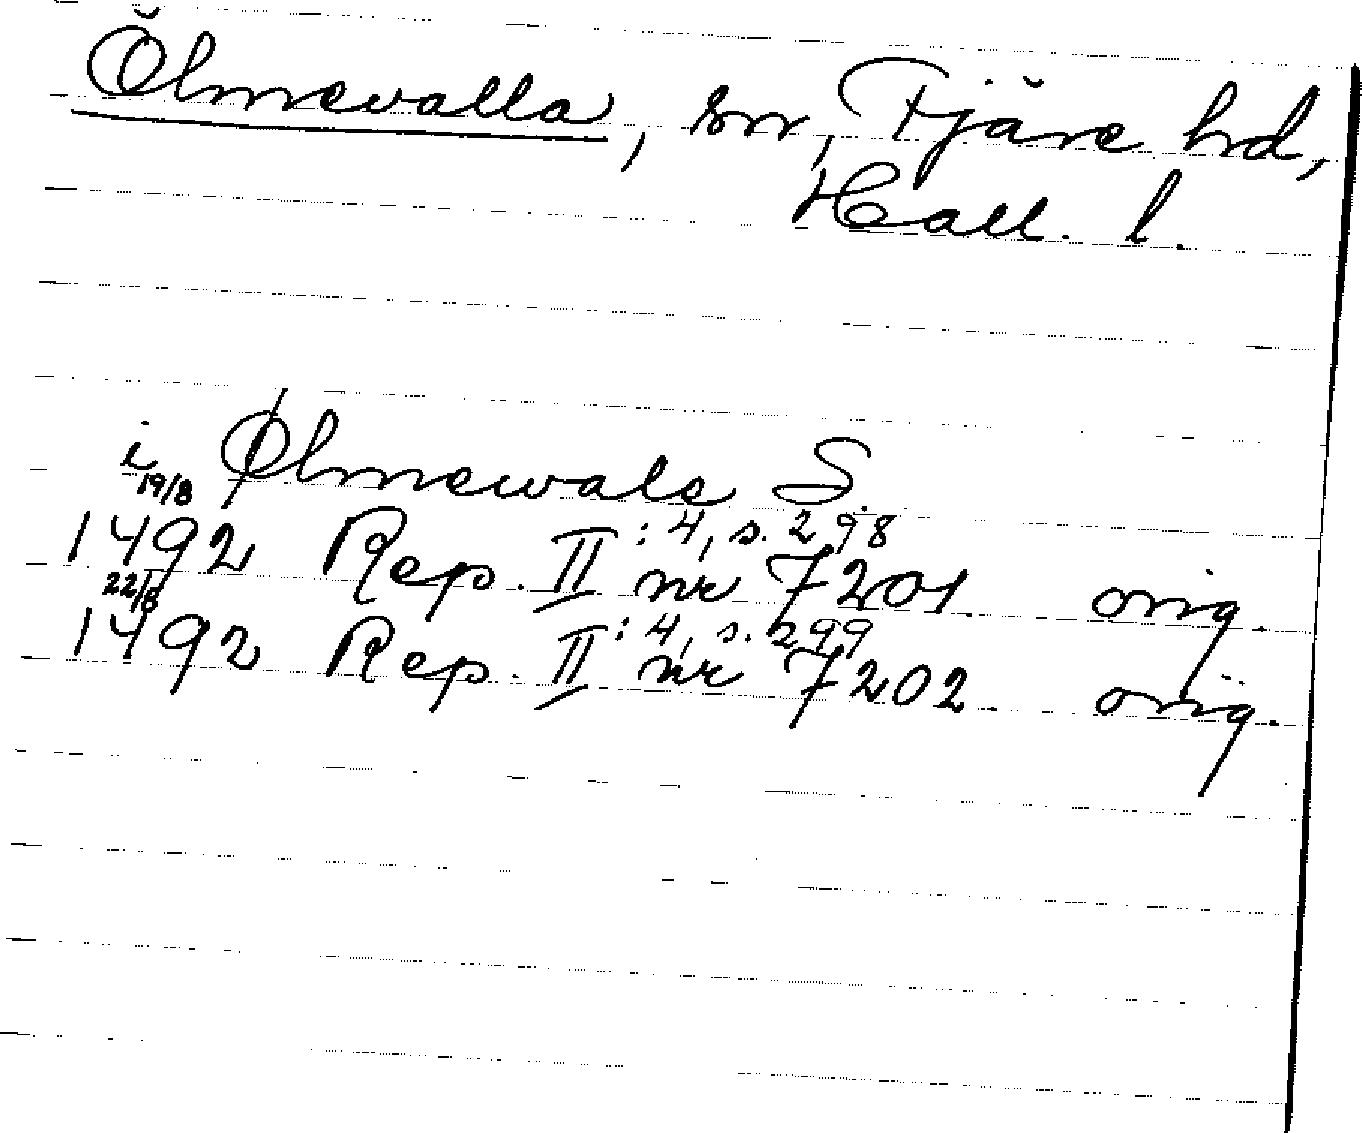 Ölmevalla, sn, Fjäre hd,
Hall. l.
i Ølmewale S
19/8 1492 Rep. II:4, s. 298 nr 7201 orig.
22/8 1492 Rep. II:4, s. 299 nr 7202 orig.